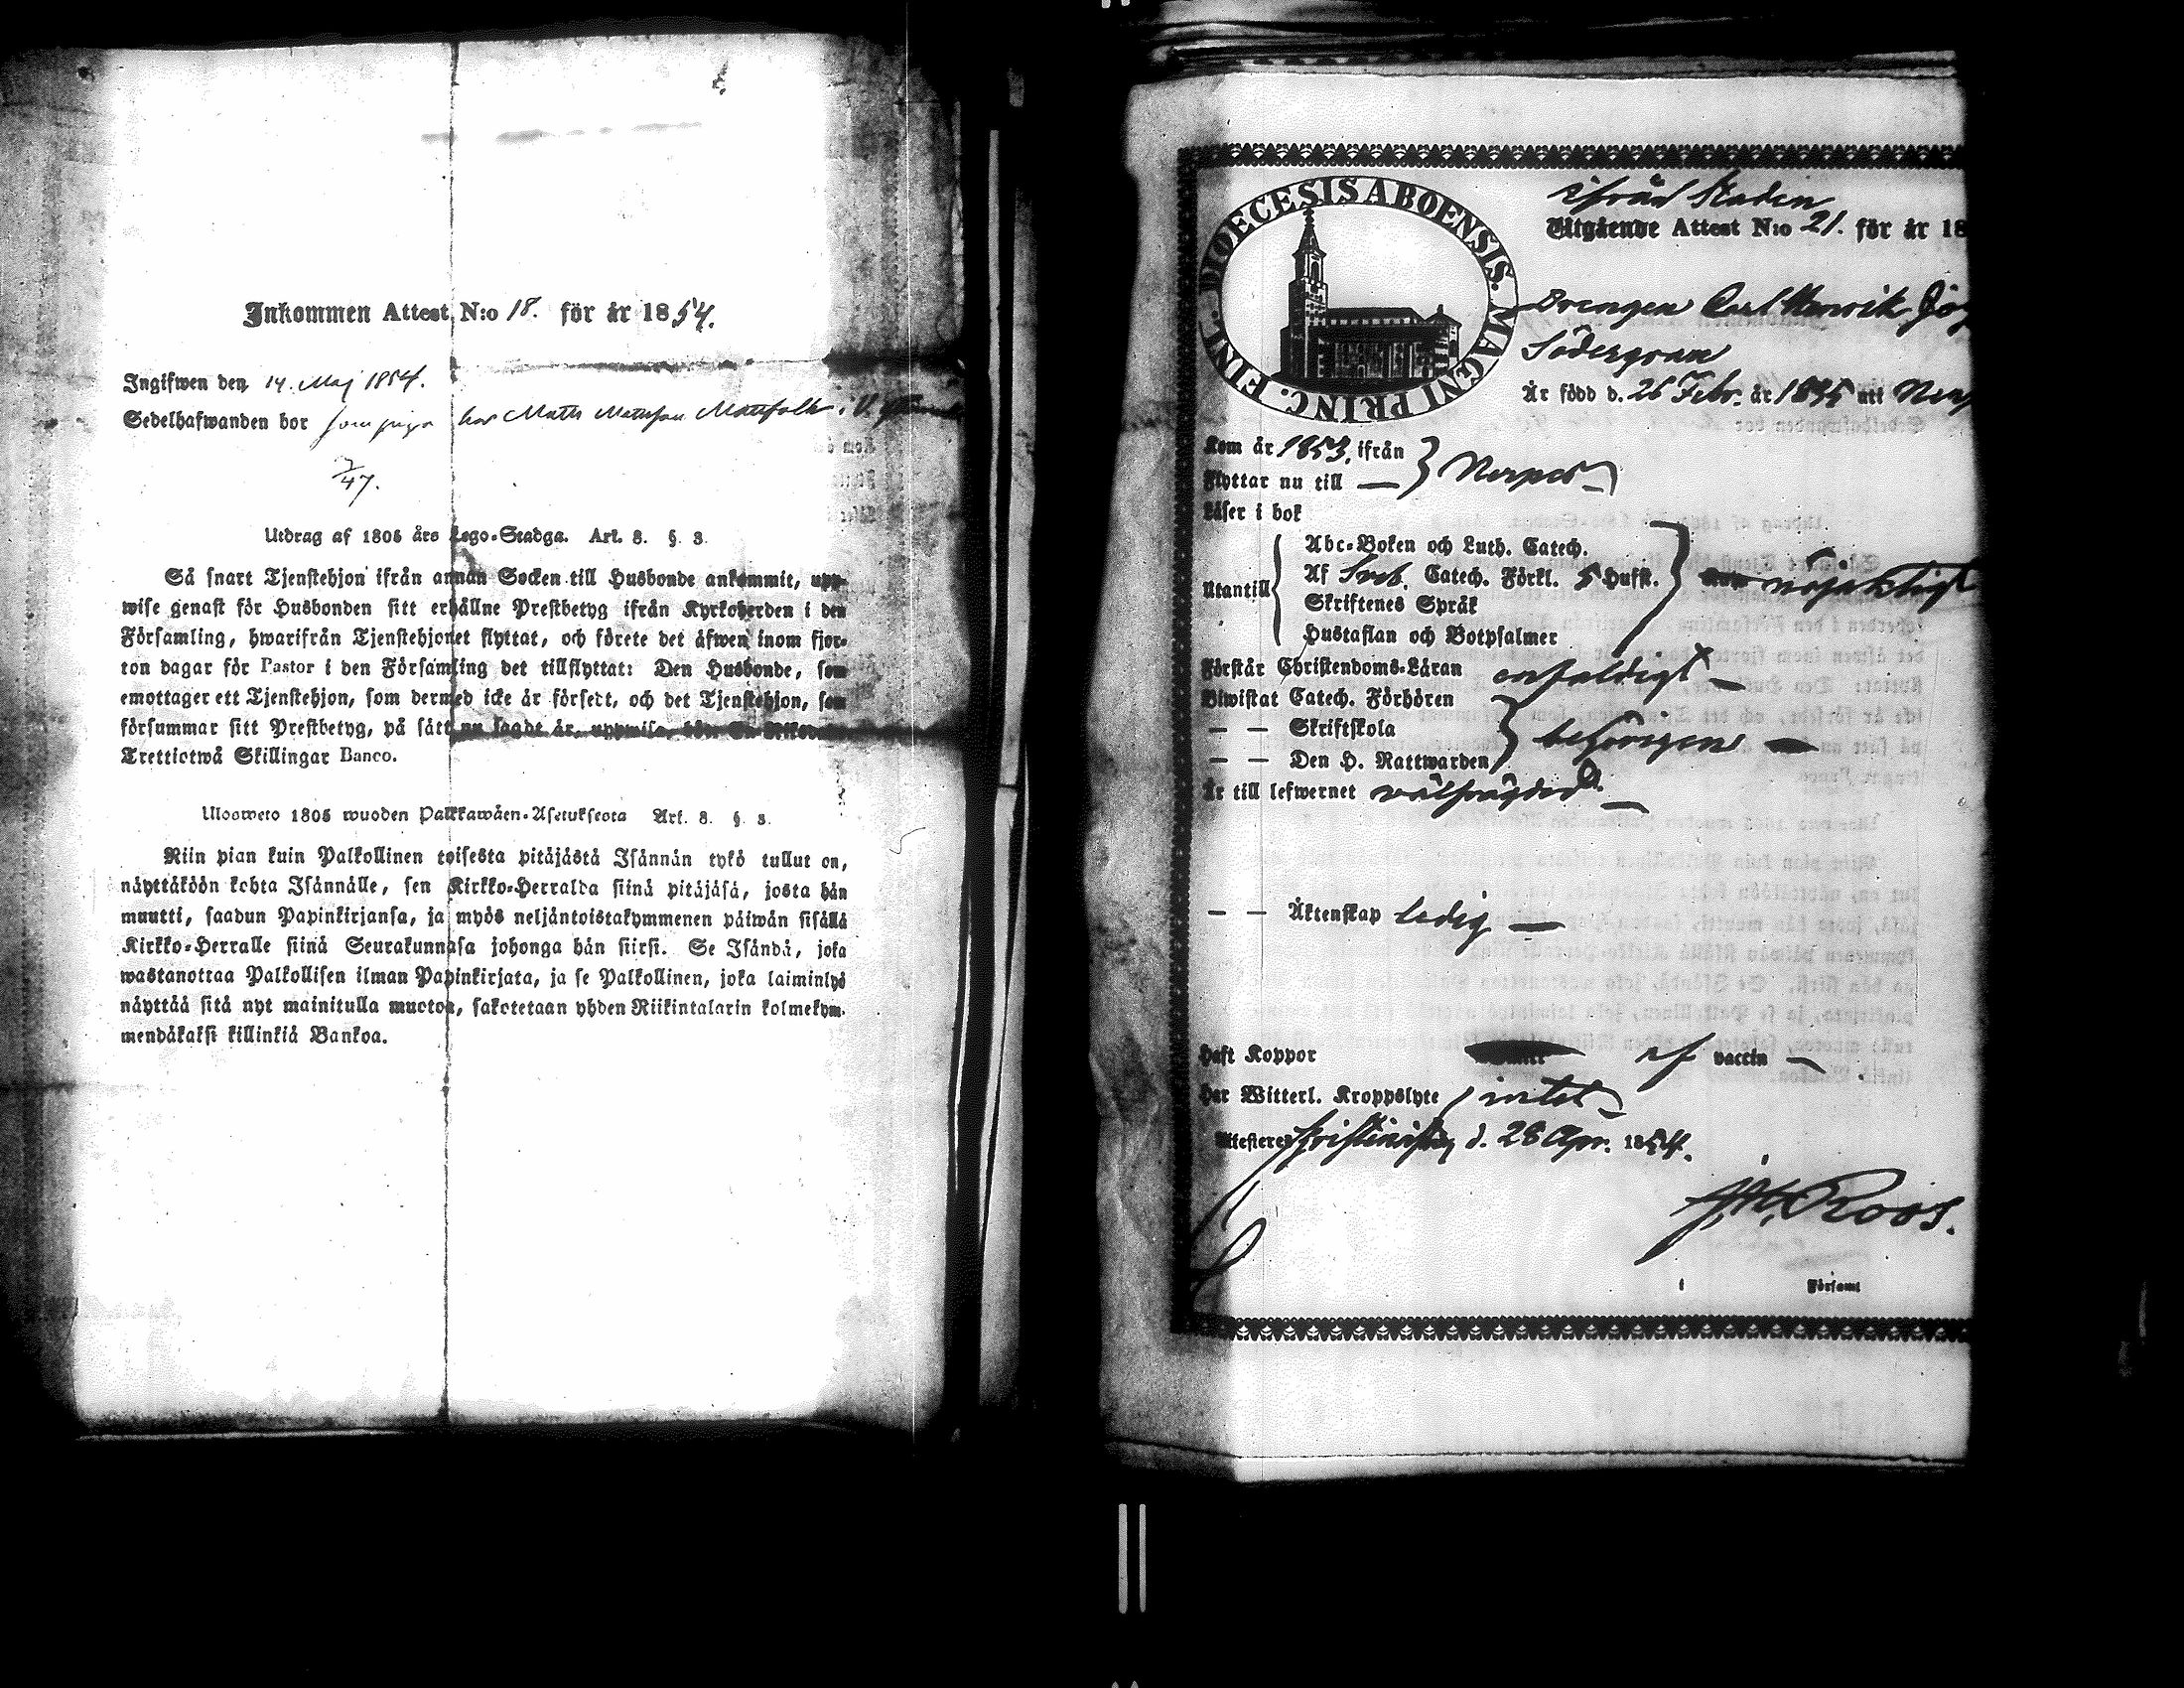 Inkommen Attest N:o 18. för år 1854.
Ingifwen den 14. Maj 1854.
Sedelhafwanden bor som piga hos Matts Mattsson Mattfolk i
7/47.
Utdrag af 1805 års Lego-Stadga. Art. 8. §. 3.
Så snart Tjenstehjon ifrån annan Socken till Husbonde ankommit, upp-
wise genast för Husbonden sitt erhållne Prestbetyg ifrån Kyrkoherden i den
Församling, hwarifrån Tjenstehjonet flyttat, och förete det äfwen inom fjor-
ton dagar för Pastor i den Församling det tillflyttat: Den Husbonde, som
emottager ett Tjenstehjon, som dermed icke är försedt, och det Tjenstehjon, som
försummar sitt Prestbetyg, på sätt nu sagdt är, uppwisa, böte En Riksdaler
Trettiotwå Skillingar Banco.
Ulosweto 1805 wuoden Palkkawäen-Asetuksesta Art. 8. §. 3.
Niin pian kuin Palkollinen toisesta pitäjästä Isännän tykö tullut on,
näyttäköön kohta Isännälle, sen Kirkko-Herralda siinä pitäjäsä, josta hän
muutti, saadun Papinkirjansa, ja myös neljäntoistakymmenen päiwän sisällä
Kirkko-Herralle siinä Seurakunnasa johonga hän siirsi. Se Isändä, joka
wastanottaa Palkollisen ilman Papinkirjata, ja se Palkollinen, joka laiminlyö
näyttää sitä nyt mainitulla muotoa, sakotetaan yhden Riikintalarin kolmekym-
mendäkaksi killinkiä Bankoa.
DIOECESIS ABOENSIS. MAGNI PRINC. FINL.
ifrån Staden
Utgående Attest N:o 21. för år 18
Drengen Carl Henrik
Södergran
Är född d. 26 Febr. år 1835 uti Nerp
Kom år 1853. ifrån
Flyttar nu till — } Nerpes
Läser i bok
Abc-Boken och Luth. Catech.
Utantill Af Sveb. Catech. Förkl. 5 Hufst. nöjaktigt
Skriftenes Språk
Hustaflan och Botpsalmer
Förstår Christendoms-Läran enfaldigt —
Biwistat Catech. Förhören
— — Skriftskola
— — Den H. Nattwarden } behörigen —
Är till lefwernet välfrägdad. —
— — Äktenskap ledig —
Haft Koppor af vaccin —
Har Witterl. Kroppslyte intet —
Attesteras Kristinestad d. 28 Apr. 1854.
Roos.
i Församl